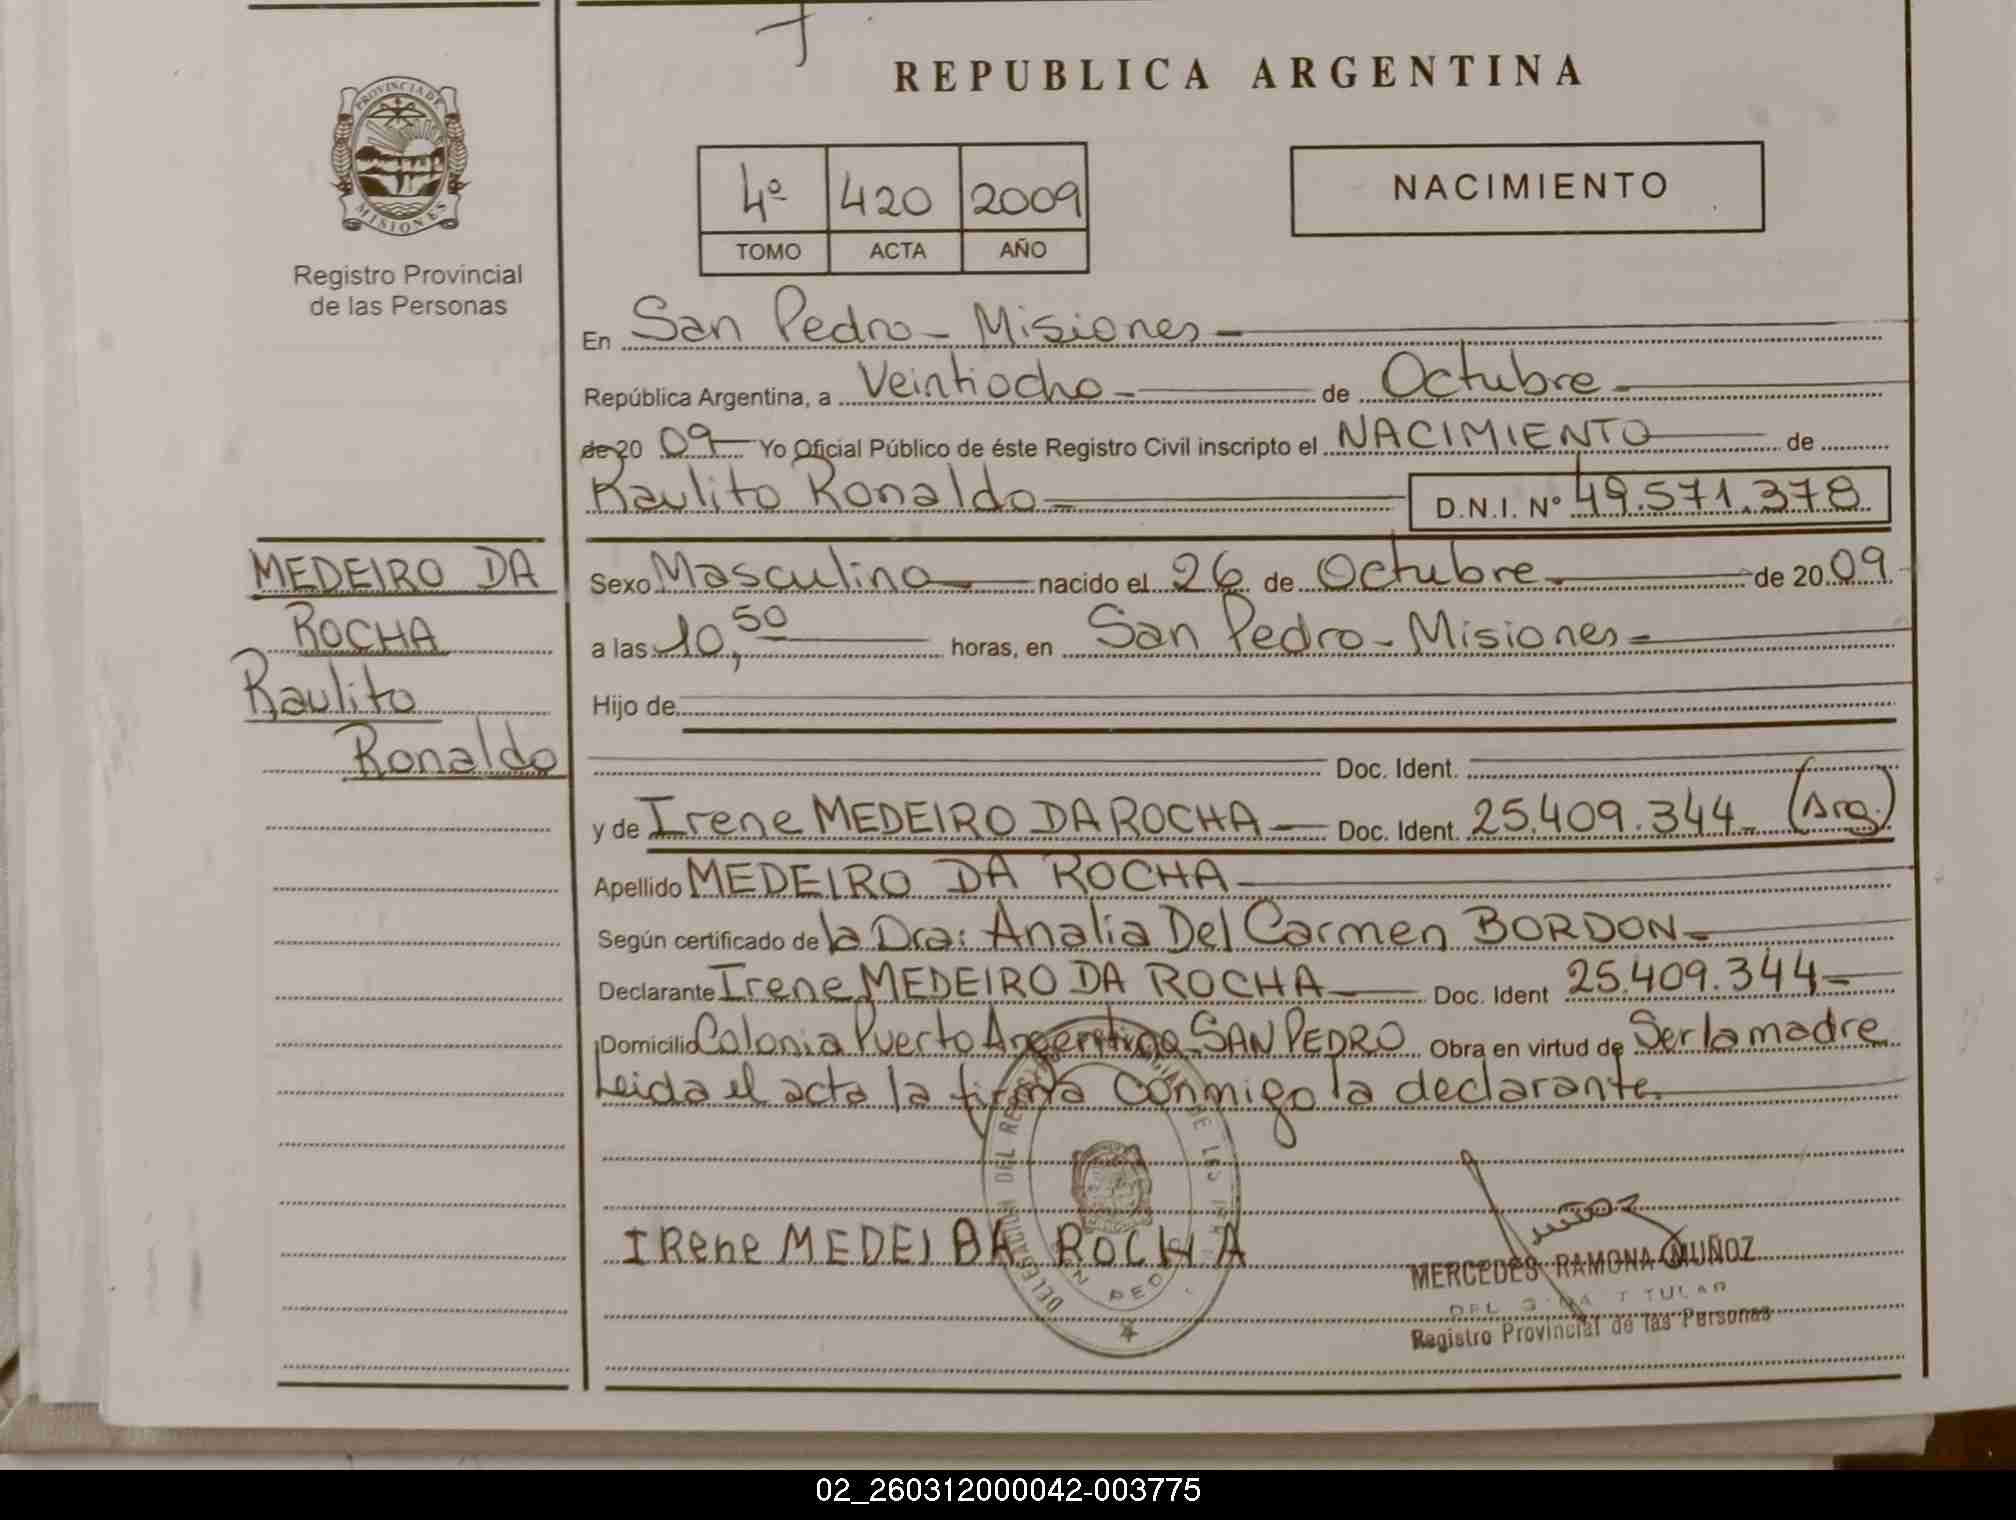 REPUBLICA ARGENTINA
PROVINCIA DE
MISIONES
Registro Provincial
de las Personas
4º 420 2009
TOMO ACTA AÑO
NACIMIENTO
En San Pedro - Misiones
República Argentina, a Veintiocho de Octubre
de 20 09 Yo Oficial Público de éste Registro Civil inscripto el NACIMIENTO de
Raulito Ronaldo D.N.I. Nº 49.571.378
MEDEIRO DA
ROCHA
Raulito
Ronaldo
Sexo Masculino nacido el 26 de Octubre de 20 09
a las 10,50 horas, en San Pedro - Misiones
Hijo de
Doc. Ident.
y de Irene MEDEIRO DA ROCHA Doc. Ident. 25.409.344 (Arg.)
Apellido MEDEIRO DA ROCHA
Según certificado de la Dra: Analia Del Carmen BORDON
Declarante Irene MEDEIRO DA ROCHA Doc. Ident 25.409.344
Domicilio Colonia Puerto Argentino SAN PEDRO Obra en virtud de Ser la madre
Leida el acta la firma conmigo la declarante
IRene MEDEI DA ROCHA
MUÑOZ
MERCEDES RAMONA MUÑOZ
TITULAR
Registro Provincial de las Personas
02_260312000042-003775